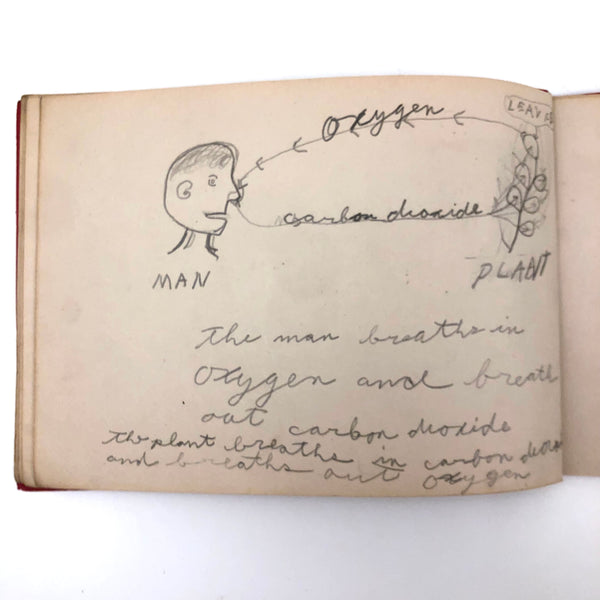 LEAVE
oxygen
carbon dioxide
MAN
PLANT
the man breaths in
oxygen and breath
out carbon dioxide
the plant breaths in carbon dioxi
and breaths out oxygen